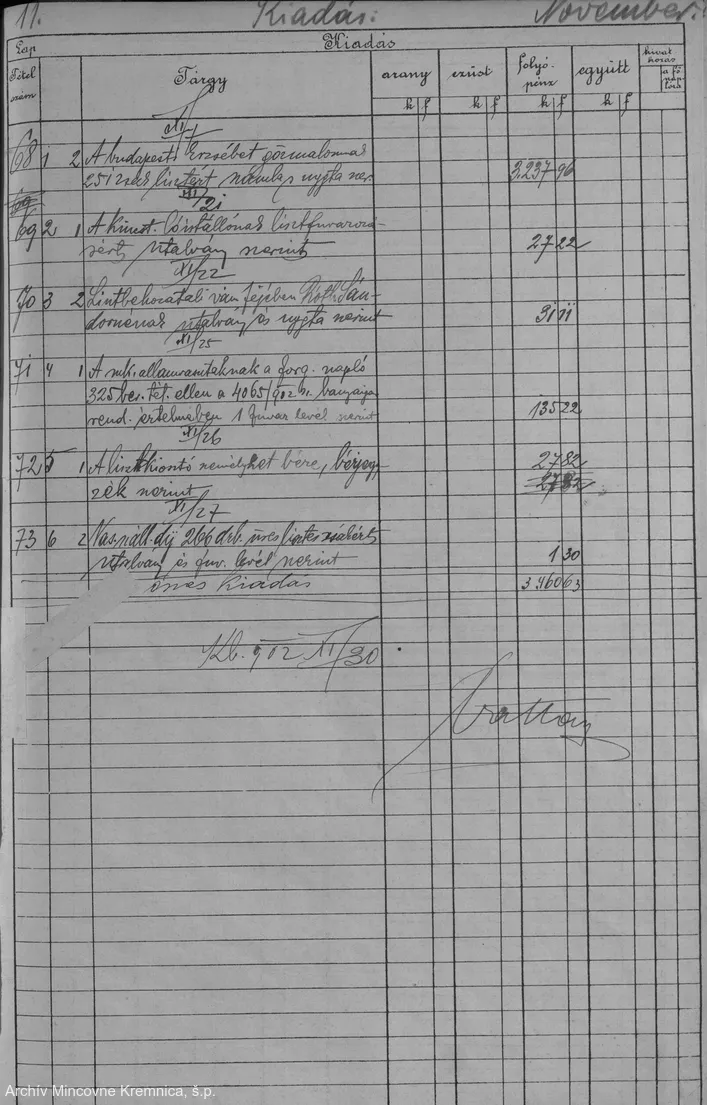 11. Kiadás: November.
Lap Kiadás
Tétel szám Tárgy arany ezüst folyó-pénz együtt hivatkozás a fő naplóra
k f k f k f k f
XI/1
68 1 2 A budapesti Erzsébet gőzmalomnak
251 zsák lisztért számla s nyugta szer. 3.237 96
XI/21
69 2 1 A kincst. lóistállónak lisztfuvarozá-
sért utalvány szerint 27 22
XI/22
70 3 2 Lisztbehozatali vám fejében Roth Sán-
dornénak utalvány és nyugta szerint 31 11
XI/25
71 4 1 A mk. államvasutaknak a forg. napló
325 bev. tét. ellen a 4065/902 sz.
rend. értelmében 1 fuvar levél szerint 135 22
XI/26
72 5 1 A lisztkiosztó személyzet bére, bérjegy-
zék szerint 27 82
27 82
XI/27
73 6 2 Vasszáll. díj 266 drb. üres lisztes zsákért
utalvány és fuv. levél szerint 1 30
összes Kiadás 3.460 63
Kb. 902 XI/30
Archív Mincovne Kremnica, š.p.